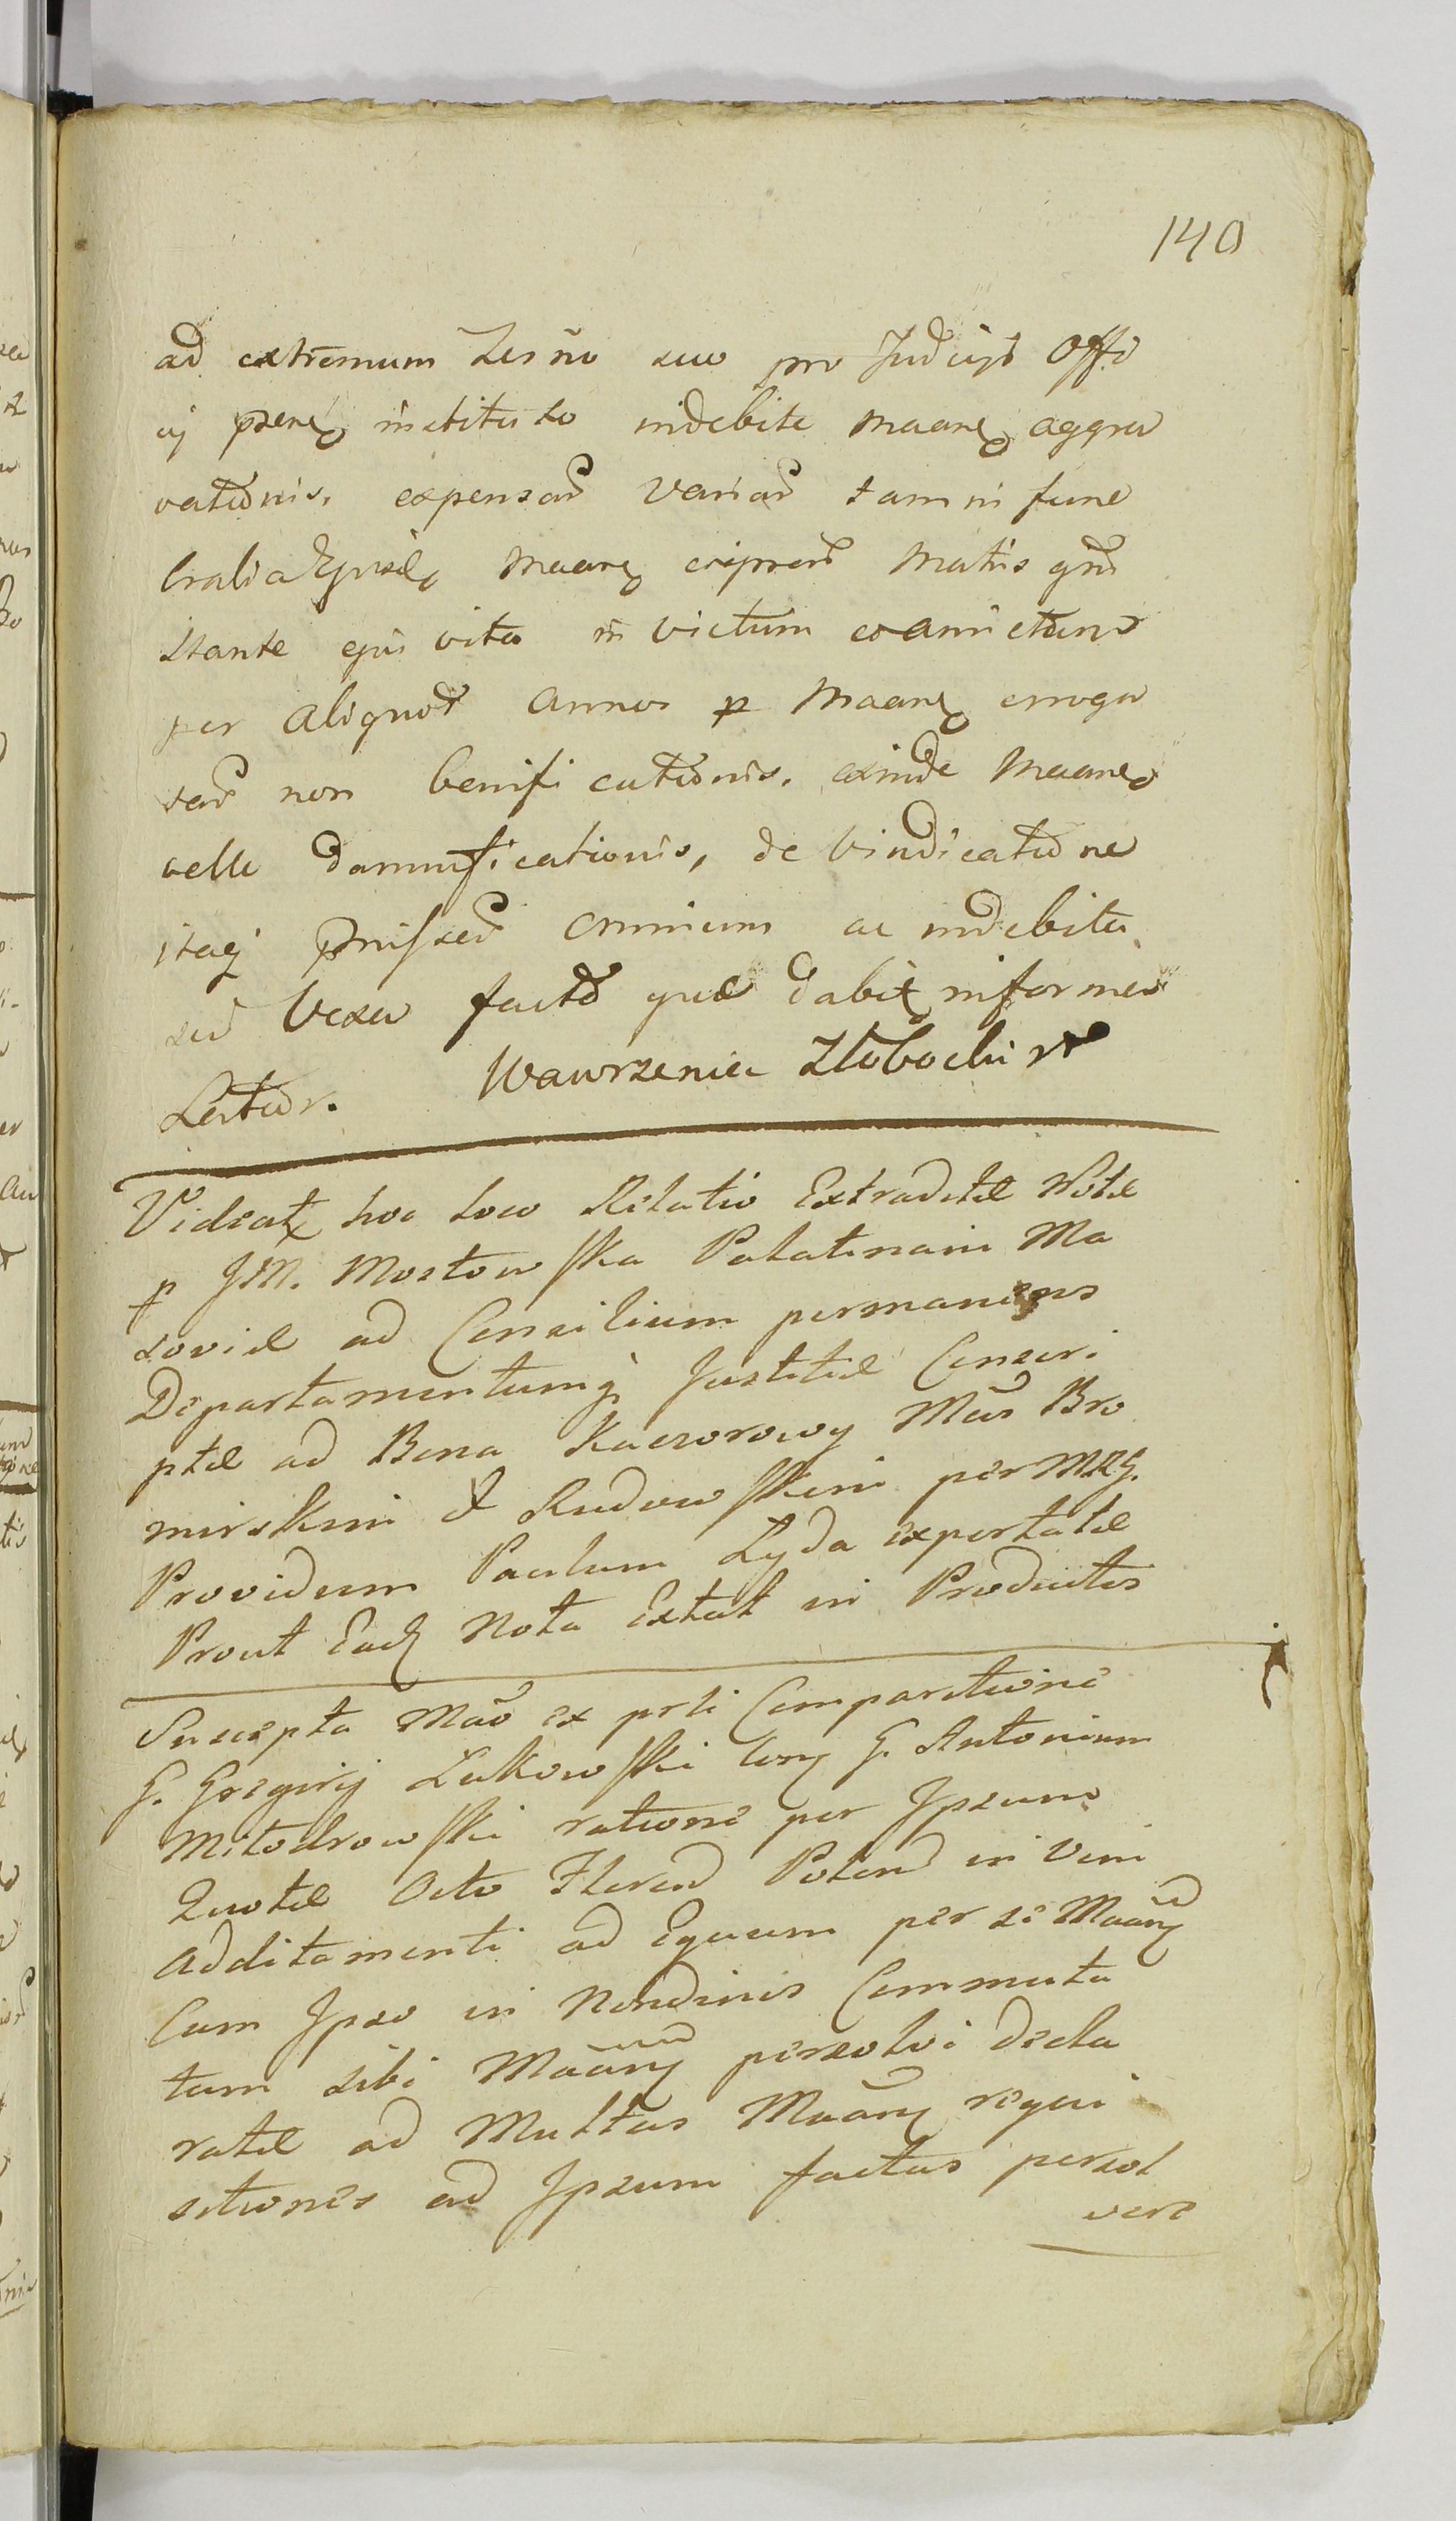 140
ad extremum suo pro Judicys Offi
cij indebite Maane aggra
vationis. expensar variar tam in fune
bralia Maane Matris
stante ejus vita in victum et amictum
per aliquot Annos p Maane erroga
tar non bonifi cationis. exinde Maane
velle damnificationis, de Vindicatione
itaq omnium ac indebite
factor quae dabit, informa
bitur. Wawrzeniec Złobocki
Videat hoc loco Relatio Extraditae Notae
p JM. Mostowska Palatinam Ma
soviae ad Consilium permanens
Departamentumq Justitiae Conscri
ptae ad Bona Kaczorowy Mās Bro
mirskim & Rudowskim per MRG.
Providum Paulum Łyda exportatae
Prout Ead Nota Extat in Productis
Suscepta Mão ex prti Comparitione
G. Gregorij Łukowski G. Antonium
Mitodrowski ratione per Ipsum
Quotae Octo Floren Polon in Vim
additamenti ad Equum per se Maane
Cum Ipso in Nundinis Commuta
tum sibi Maane persolvi decla
ratae ad Multas Maane requi
sitiones ad Ipsum factas persol
vere